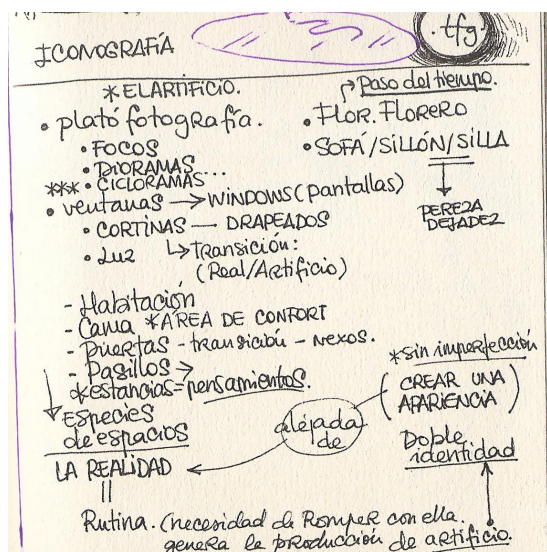 tfg.
ICONOGRAFÍA
*EL ARTIFICIO.
• plató fotografía.
• FOCOS
• DIORAMAS...
*** • CICLORAMAS
• ventanas → WINDOWS (pantallas)
• CORTINAS — DRAPEADOS
• Luz ↳ Transición:
(Real/Artificio)
Paso del tiempo.
• FLOR. FLORERO
• SOFÁ/SILLÓN/SILLA
PEREZA
DEJADEZ
- Habitación
- Cama *AREA DE CONFORT
- Puertas - transición - nexos.
- Pasillos →
*estancias = pensamientos.
Especies
de espacios
LA REALIDAD
alejada
de
*sin imperfección
(CREAR UNA
APARIENCIA)
Doble
identidad
Rutina. (necesidad de Romper con ella.
genera la producción de artificio.